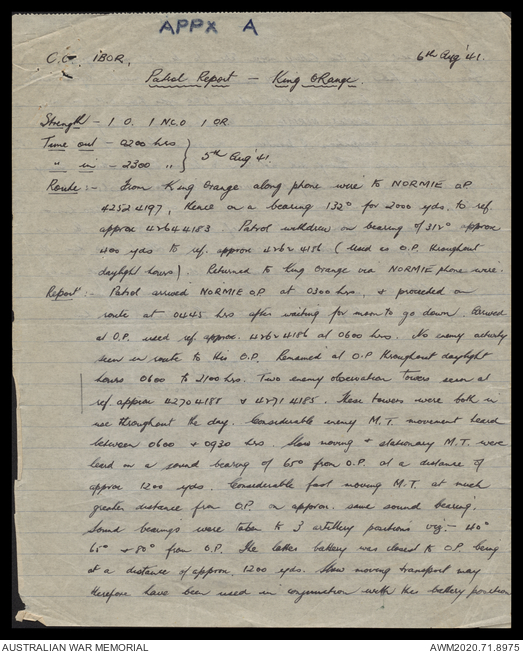 APPX A
C.O. 1BOR.
6th Aug '41.
Patrol Report - King ORange.
Strength - 1 O. 1 N.C.O 1 OR.
Time out - 0200 hrs
" in - 2300 "
5th Aug '41.
Route :- From King Orange along phone wire to NORMIE O.P.
4252 4197, thence on a bearing 132° for 2000 yds. to ref.
approx 4264 4183 Patrol withdrew on bearing of 312° approx
400 yds to ref. approx 4262 4186 (Used as O.P. throughout
daylight hours). Returned to King Orange via NORMIE phone wire.
Report :- Patrol arrived NORMIE O.P at 0300 hrs, & proceeded on
route at 0445 hrs after waiting for moon to go down. Arrived
at O.P. used ref. approx. 4262 4186 at 0600 hrs. No enemy activity
seen en route to this O.P. Remained at O.P throughout daylight
hours 0600 to 2100 hrs. Two enemy observation Towers seen at
ref. approx 4270 4188 & 4271 4185. These towers were both in
use throughout the day. Considerable enemy M.T. movement heard
between 0600 & 0930 hrs. Slow moving & stationary M.T. were
heard on a sound bearing of 65° from O.P. at a distance of
approx 1200 yds. Considerable fast moving M.T. at much
greater distance from O.P. on approx. same sound bearing.
Sound bearings were taken to 3 artillery positions viz:- 40°
65° & 80° from O.P. The latter battery was closest to O.P. being
at a distance of approx. 1200 yds. Slow moving transport may
therefore have been used in conjunction with the battery position
AUSTRALIAN WAR MEMORIAL
AWM2020.71.8975